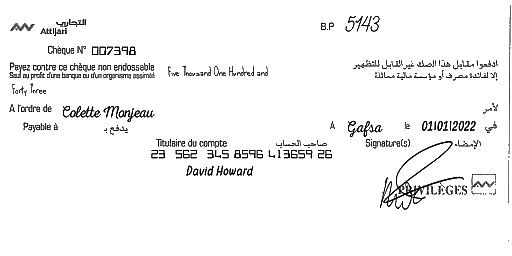 التجاري
Attijari
B.P 5143
Chèque N° 007398
Payez contre ce chèque non endossable
Sauf au profit d'une banque ou d'un organisme assimilé
Five Thousand One Hundred and
ادفعوا مقابل هذا الصك غير القابل للتظهير
إلا لفائدة مصرف أو مؤسسة مالية مماثلة
Forty Three
A l'ordre de Colette Monjeau لأمر
Payable à يدفع بـ
A Gafsa le 01/01/2022 في
Titulaire du compte صاحب الحساب
Signature(s) الإمضاء
23 562 345 8596 413659 26
David Howard
PRIVILÈGES